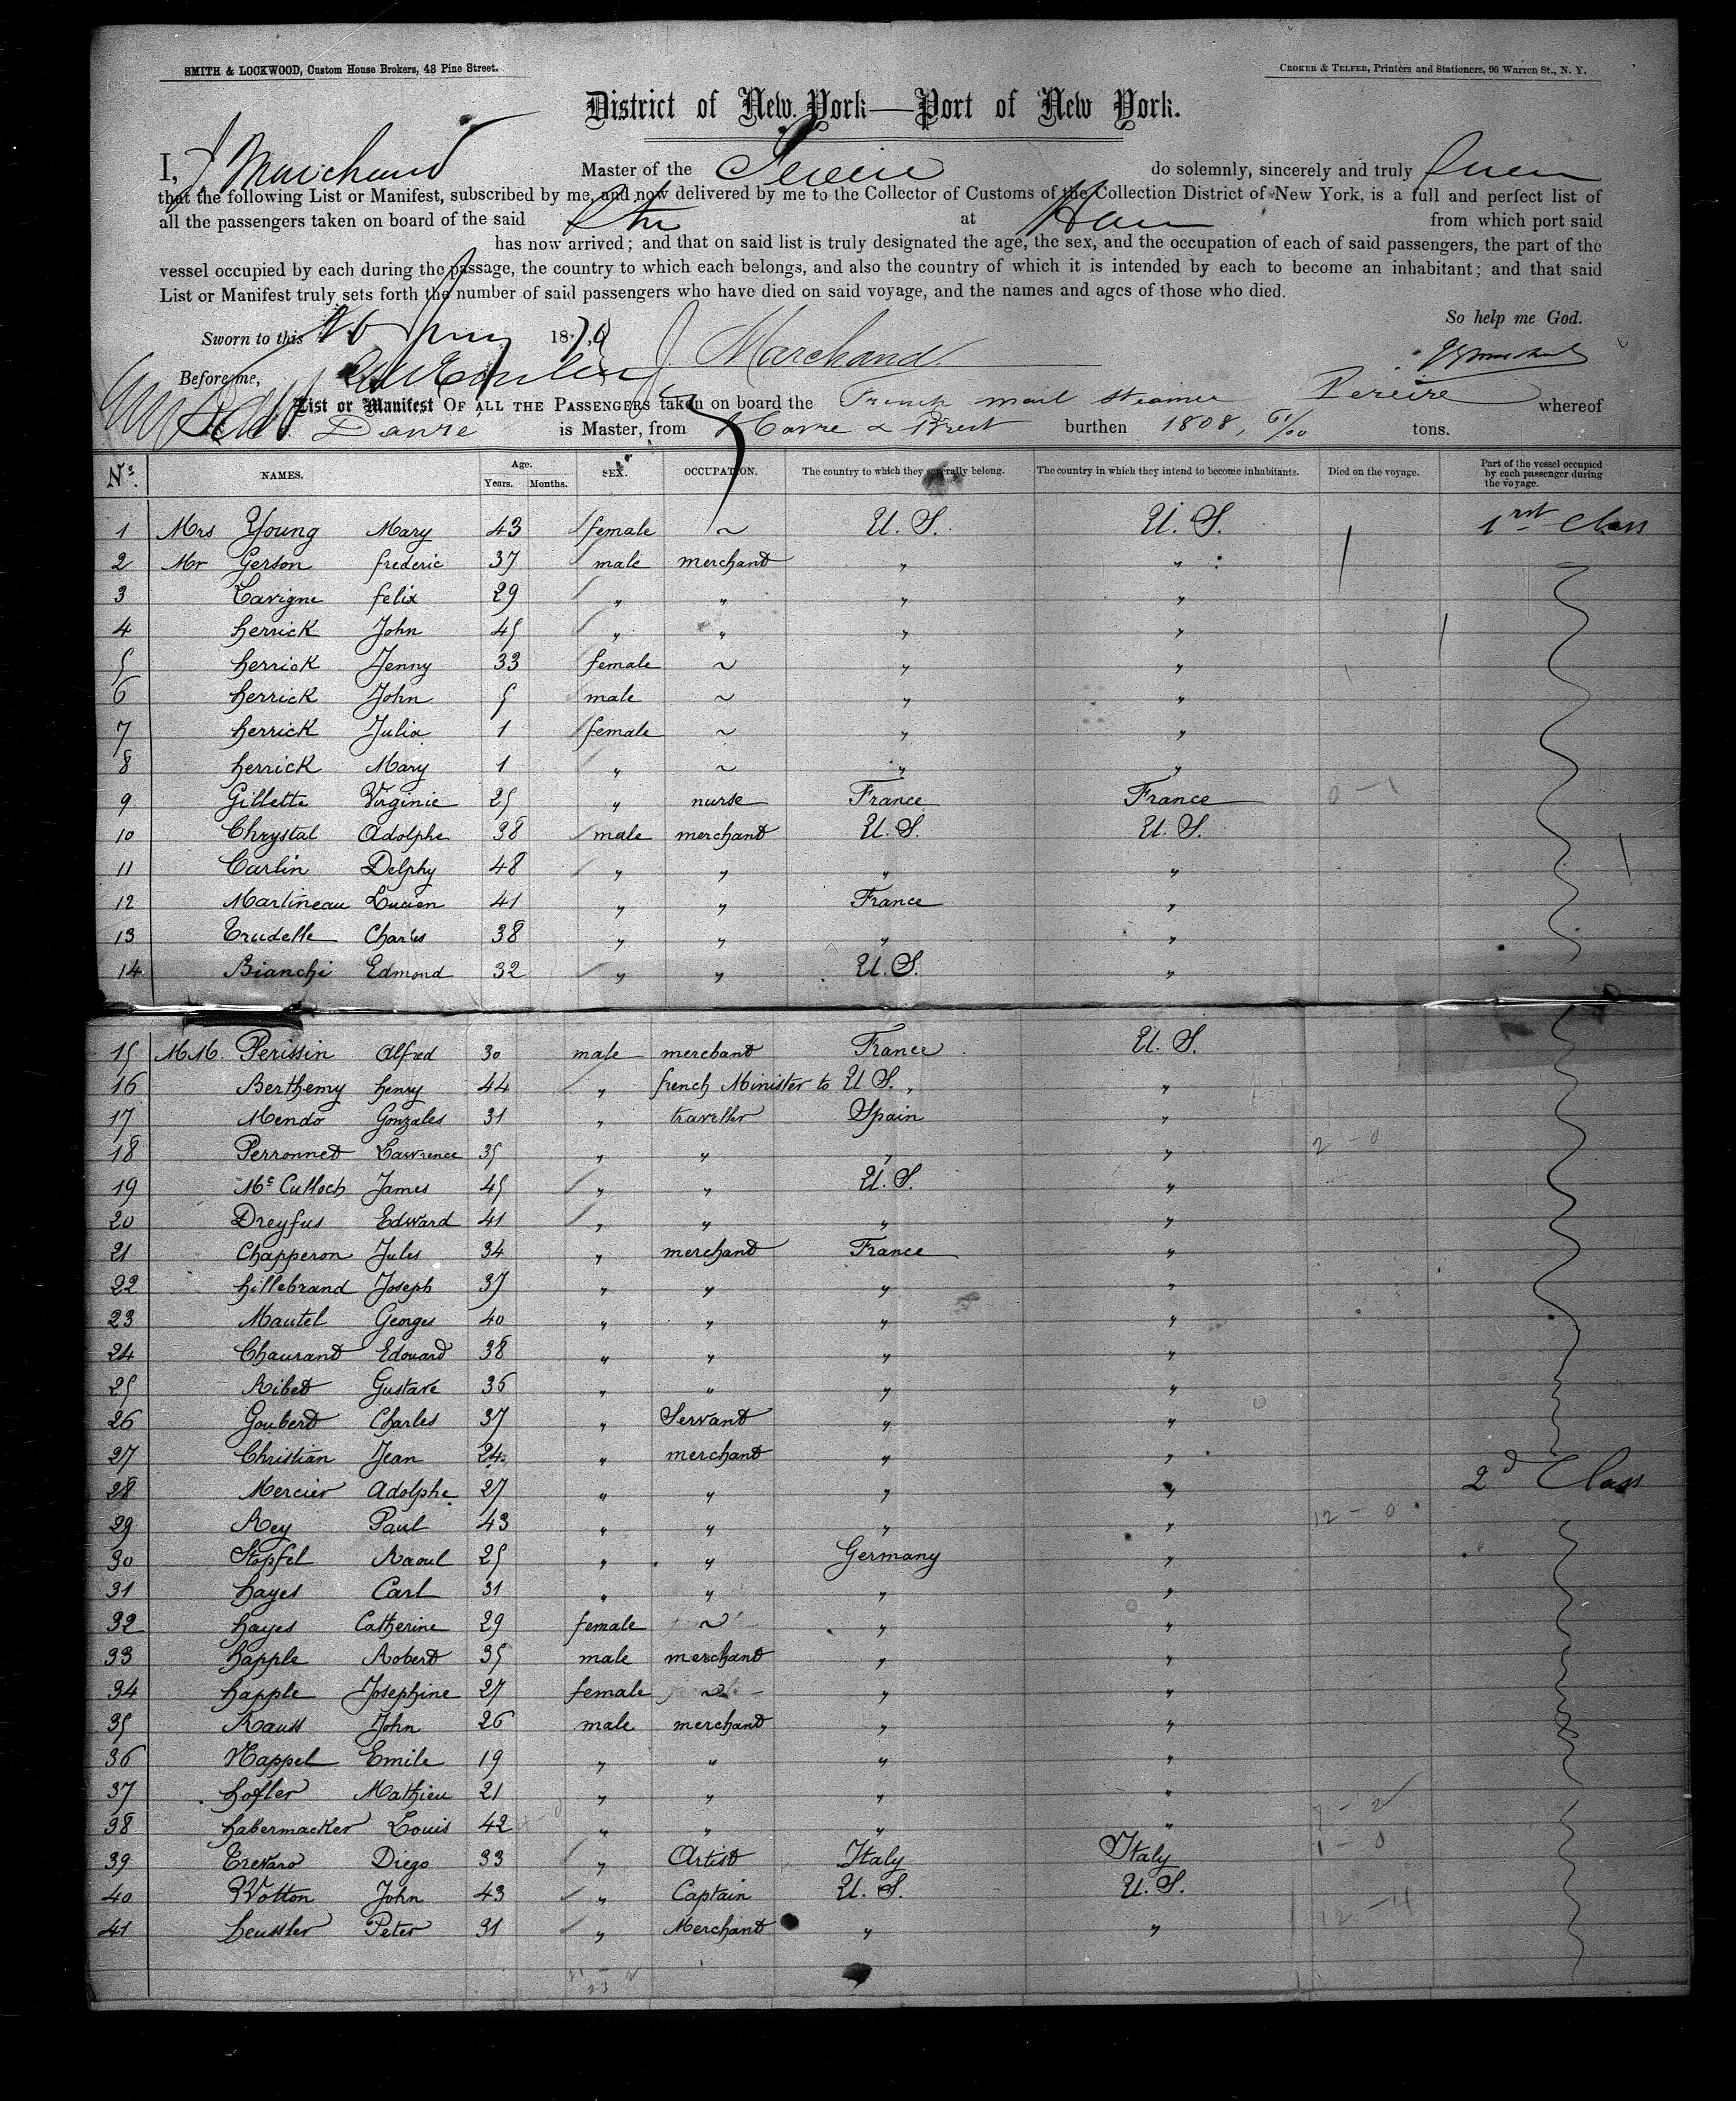 SMITH & LOCKWOOD, Custom House Brokers, 48 Pine Street.
CROKER & TELFER, Printers and Stationers, 96 Warren St., N. Y.
District of New York—Port of New York.
I, J Marchand Master of the Pereire do solemnly, sincerely and truly swear
that the following List or Manifest, subscribed by me, and now delivered by me to the Collector of Customs of the Collection District of New York, is a full and perfect list of
all the passengers taken on board of the said Str at Havre from which port said
has now arrived; and that on said list is truly designated the age, the sex, and the occupation of each of said passengers, the part of the
vessel occupied by each during the passage, the country to which each belongs, and also the country of which it is intended by each to become an inhabitant; and that said
List or Manifest truly sets forth the number of said passengers who have died on said voyage, and the names and ages of those who died.
So help me God.
Sworn to this 1870
J Marchand
Before me,
List or Manifest OF ALL THE PASSENGERS taken on board the French mail steamer Pereire whereof
Danre is Master, from Havre & Brest burthen 1808, 61/00 tons.
Nos. NAMES. Age. Years. Months. SEX. OCCUPATION. The country to which they severally belong. The country in which they intend to become inhabitants. Died on the voyage. Part of the vessel occupied by each passenger during the voyage.
1 Mrs Young Mary 43 female ~ U. S. U. S. 1rst Class
2 Mr Gerson frederic 37 male merchand " "
3 Lavigne felix 29 " " " "
4 herrick John 45 " " " "
5 herrick Jenny 33 female ~ " "
6 herrick John 5 male ~ " "
7 herrick Julia 1 female ~ " "
8 herrick Mary 1 " ~ " "
9 Gillette Virginie 25 " nurse France France 0 - 1
10 Chrystal Adolphe 38 male merchand U. S. U. S.
11 Carlin Delphy 48 " " " "
12 Martineau Lucien 41 " " France "
13 Trudelle Charles 38 " " " "
14 Bianchi Edmond 32 " " U. S. "
15 MM. Perissin Alfred 30 male merchand France U. S.
16 Berthemy henry 44 " french Minister to U S. " "
17 Mendo Gonzales 31 " traveller Spain "
18 Perronned Lawrence 35 " " " " 2 - 0
19 Mc Culloch James 45 " " U. S. "
20 Dreyfus Edward 41 " " " "
21 Chapperon Jules 34 " merchand France "
22 hillebrand Joseph 37 " " " "
23 Mautel Georges 40 " " " "
24 Chaurand Edouard 38 " " " "
25 Ribed Gustave 36 " " " "
26 Gouberd Charles 37 " Servand " "
27 Christian Jean 24 " merchand " "
28 Mercier Adolphe 27 " " " " 2d Class
29 Rey Paul 43 " " " " 12 - 0
30 Stopfel Raoul 25 " " Germany "
31 hayes Carl 31 " " " "
32 hayes Catherine 29 female ~ " "
33 happle Roberd 35 male merchand " "
34 happle Josephine 27 female ~ " "
35 Rauss John 26 male merchand " "
36 Nappel Emile 19 " " " "
37 hofler Mathieu 21 " " " "
38 habermacker Louis 42 " " " " 7 - 2
39 Trevaro Diego 33 " Artist Italy Italy 1 - 0
40 Wotton John 43 " Captain U. S. U. S.
41 heussler Peter 31 " Merchand " " 12 - 4
23